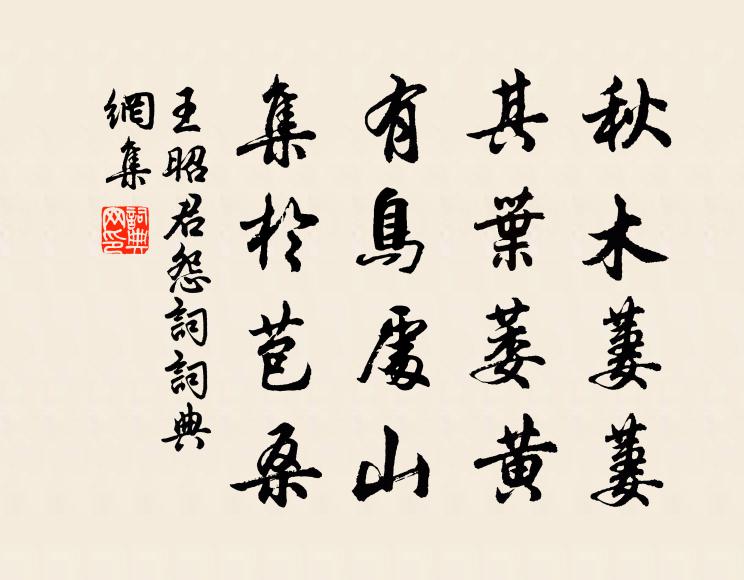 秋木蔞蔞
其葉萎黃
有鳥處山
集於苞桑
王昭君怨詞詞典
網集
詞典
网印